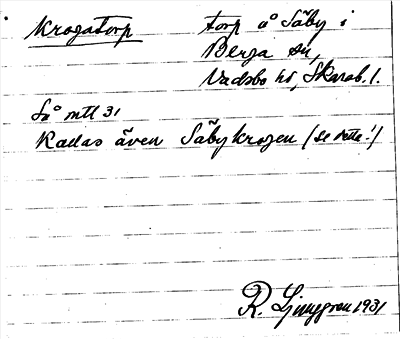 Krogatorp torp å Säby i
Berga sn,
Vadsbo hd, Skarab. l.
Så mtl 31
Kallas även Säbykrogen (se detta!)
R. Ljunggren 1931